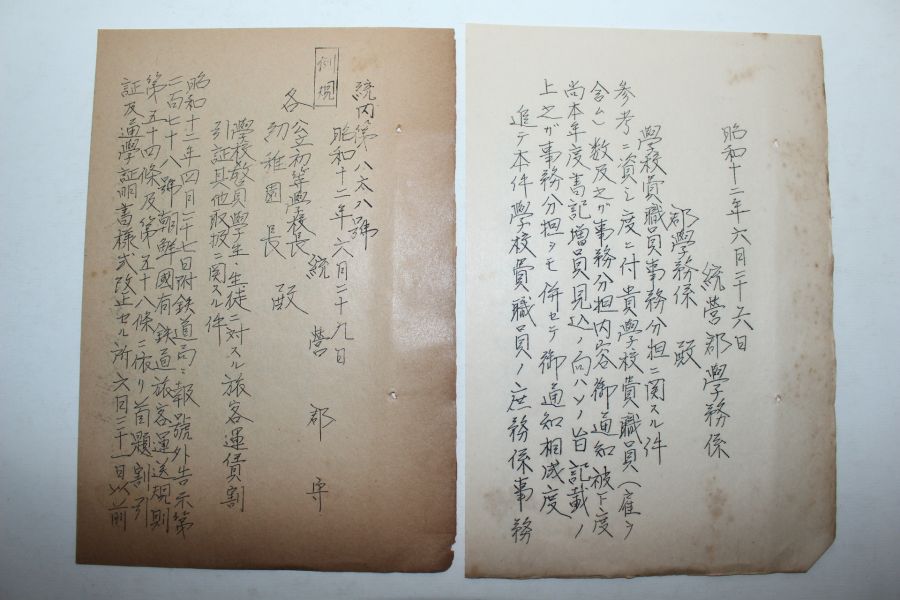 昭和十二年六月二十六日
統営郡學務係
郡學務係 殿
學校費職員事務分担ニ関スル件
参考ニ資シ度ニ付貴學校費職員（雇ヲ
含ム）数及之ガ事務分担内容御通知被下度
尚本年度書記増員見込ノ向ハソノ旨記載ノ
上之ガ事務分担ヲモ併セテ御通知相成度
追テ本件學校費職員ノ庶務係事務
例規
統内第八六八號
昭和十二年六月二十九日
統營郡守
各公立初等學校長
幼稚園長 殿
學校教員學生生徒ニ対スル旅客運賃割
引証其他取扱ニ関スル件
昭和十二年四月二十七日附鉄道局報號外告示第
二百七十八號朝鮮國有鉄道旅客運送規則
第五十四條及第五十八條ニ依リ首題割引
証及通學証明書様式改正セル所六月三十一日以前